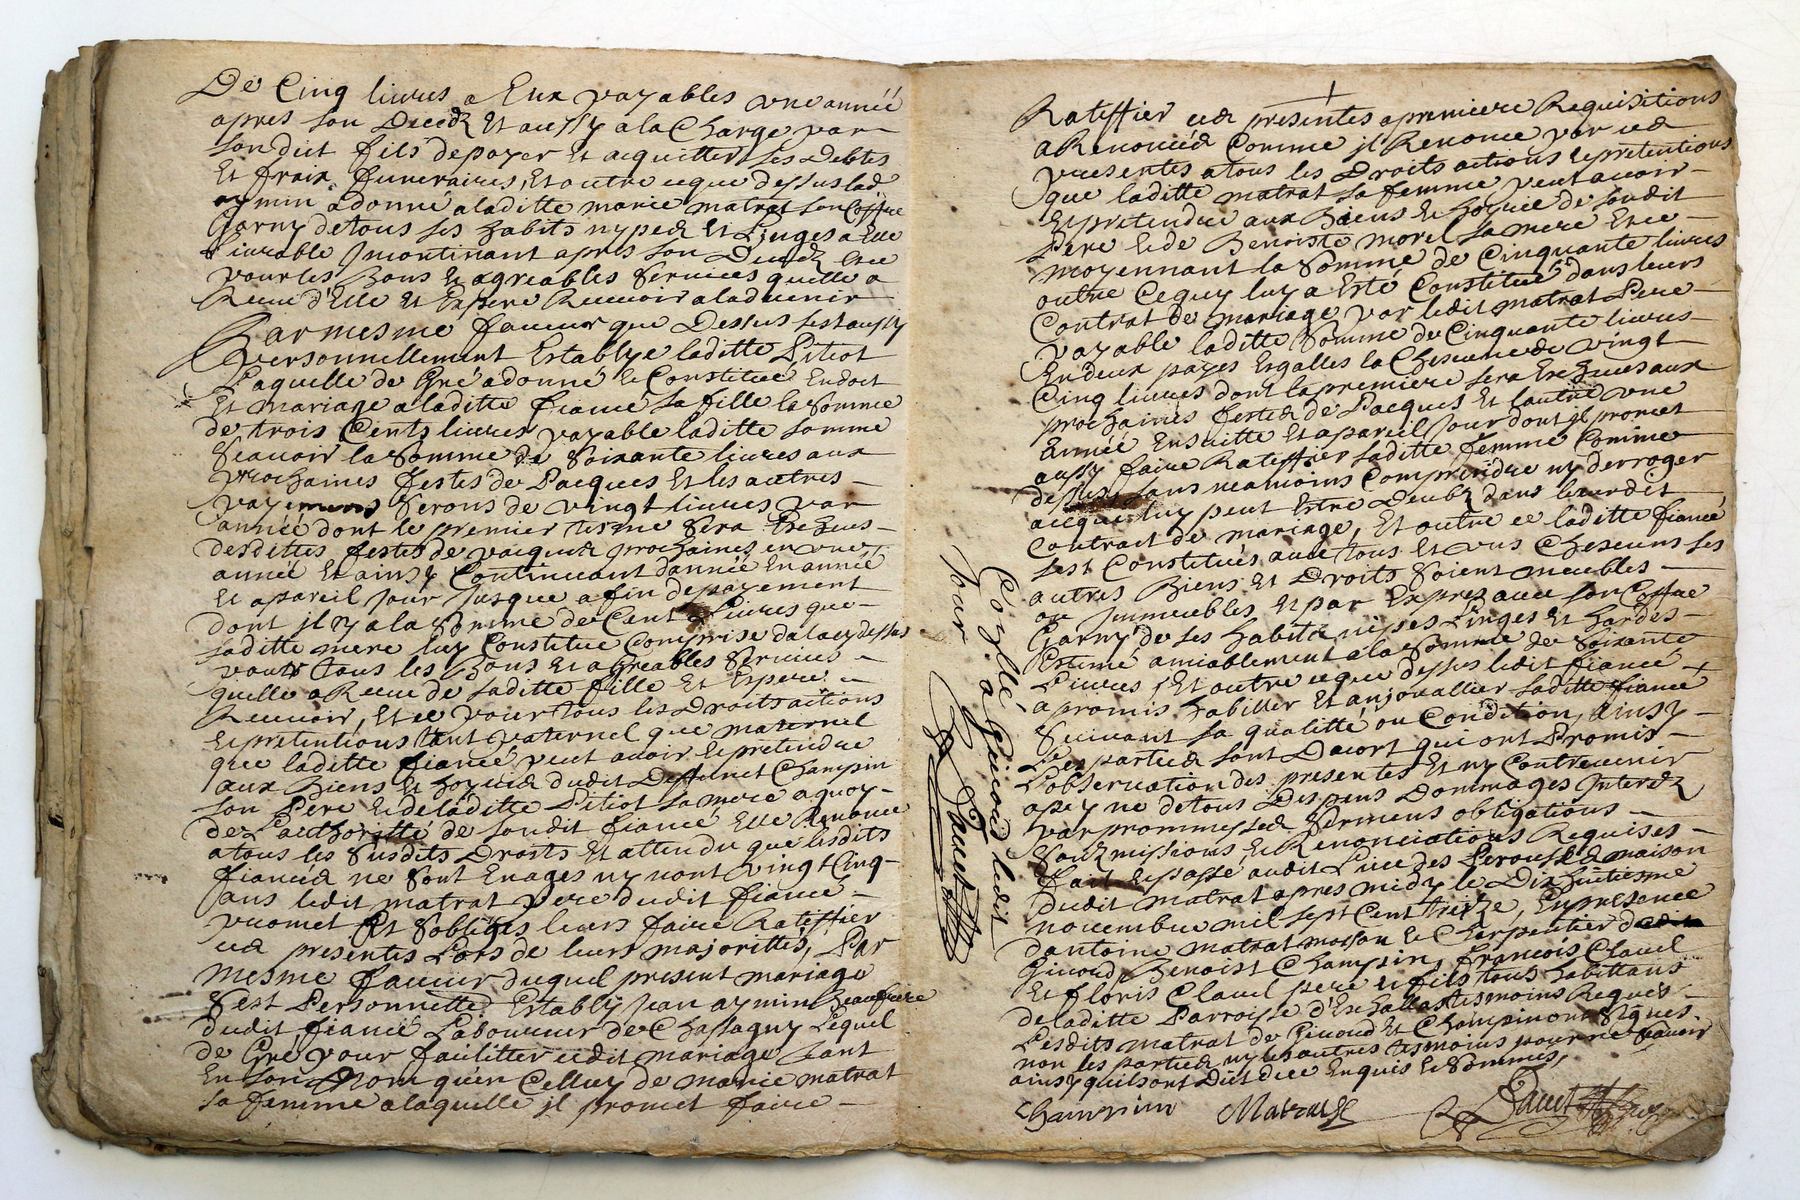 De Cinq livres a Eux payables une année
apres son Deceds Et aussy a la Charge par
sondit fils de payer Et acquitter ses Debtes
Et fraix funeraires, Et outre ce que dessus lad
aymin a donné a laditte marie matrat son Coffre
Garny de tous ses habits nipes Et Linges a Elle
Livrable Incontinant apres son Deceds et ce
pour les bons Et agreables Services quelle a
Receu d'Elle Et Espere Recevoir a ladvenir
Par mesme faveur que Dessus sest aussy
personnellement Establye laditte Pitiot
Laquelle de Gré a donné Et Constitué En dot
Et mariage a laditte fiancé sa fille la Somme
de trois Cents livres payable laditte somme
Scavoir la Somme de Soixante livres aux
prochaines festes de Pacques Et les autres
payemens Serons de vingt livres par
année dont le premier terme Sera Escheus
desdittes festes de pacques prochaines en une
année Et ainsy Continuant dannée En année
Et apareil Jour Jusque a fin de payement
dont il y a la Somme de Cent Livres que
laditte mere luy Constitue Comprise
tous les bons Et agreables Services
quelle a Receu de laditte fille Et Espere
Recevoir, Et ce pour tous les Droits actions
Et pretentions tant paternel que maternel
que laditte fiancé peut avoir Et pretendre
aux Biens Et hoyrie dudit Deffunct Champin
son Pere Et de laditte Pitiot sa mere a quoy
de L'authoritté de sondit fiancé Elle Renonce
a tous les Susdits Droits Et attendu que lesdits
fiancés ne Sont Enages ny nont vingt Cinq
ans ledit matrat pere dudit fiancé
promet Et Soblige leurs faire Ratiffier
ces presentes Lors de leurs majorittés, Par
mesme faveur duquel present mariage
S'est Personnelle Establÿ Jean aymin Beaufrere
dudit fiancé Laboureur de Chassagny Lequel
de Gré pour facilitter cedit mariage tant
En Son Nom qu'en Celluy de marie matrat
sa femme a laquelle il promet faire
Ratiffier ces presentes a premiere Requisitions
a Renoncé Comme jl Renonce par ces
presentes a tous les Droits actions Et pretentions
que laditte matrat sa femme peut avoir
Et pretendre aux Biens Et hoyrie de sondit
Pere Et de Benoiste morel sa mere Et ce
moyennant la Somme de Cinquante livres
outre Ce quy luy a Esté Constitué dans leurs
Contrat de mariage par ledit matrat Pere
payable laditte Somme de Cinquante livres
En deux payes Esgalles la Chescune de vingt
Cinq livres dont la premiere sera Escheues aux
prochaines festes de Pacques Et lautre une
Année Ensuitte Et apareil Jour dont jl promet
aussy faire Ratiffier laditte femme Comme
dessus sans neamoins Comprendre ny derroger
a ce quy luy peut Estre Deubz dans leurdit
Contrait de mariage, Et outre ce laditte fiancé
sest Constitués avec tous Et uns Chescuns ses
autres Biens Et Droits Soient meubles
ou Immeubles Et par Exprez avec son Coffre
Garny de ses habits nipes Linges Et hardes
Estimé amiablement a la Somme de Soixante
Livres, Et outre ce que dessus ledit fiancé
a promis habiller Et anjouallier laditte fiancé
Suivant sa qualitté ou Condition, ainsy
Les parties sont Dacort qui ont Promis
L'observation des presentes Et ny Contrevenir
a peyne de tous Despens Dommages Interez
par prommesses Sermens obligations
Soubzmissions Et Renonciations Requises
Fait Et passé audit Lieu des Perouses maison
dudit matrat apres midy le Dix huitiesme
novembre mil sept Cent treize, En presence
dantoine matrat masson Et Charpentier
Givord, Benoist Champin, francois Clavel
Et floris Clavel pere Et fils tous habittans
de laditte Parroisse d'Eschallas tesmoins Requis
Lesdits matrat de Givord Et Champin ont Signés
non les parties ny les autres tesmoins pour ne scavoir
ainsy quils ont Dict de ce Enquis Et Sommés,
Champin Matrat
Coppie a Givord ledit
Jour